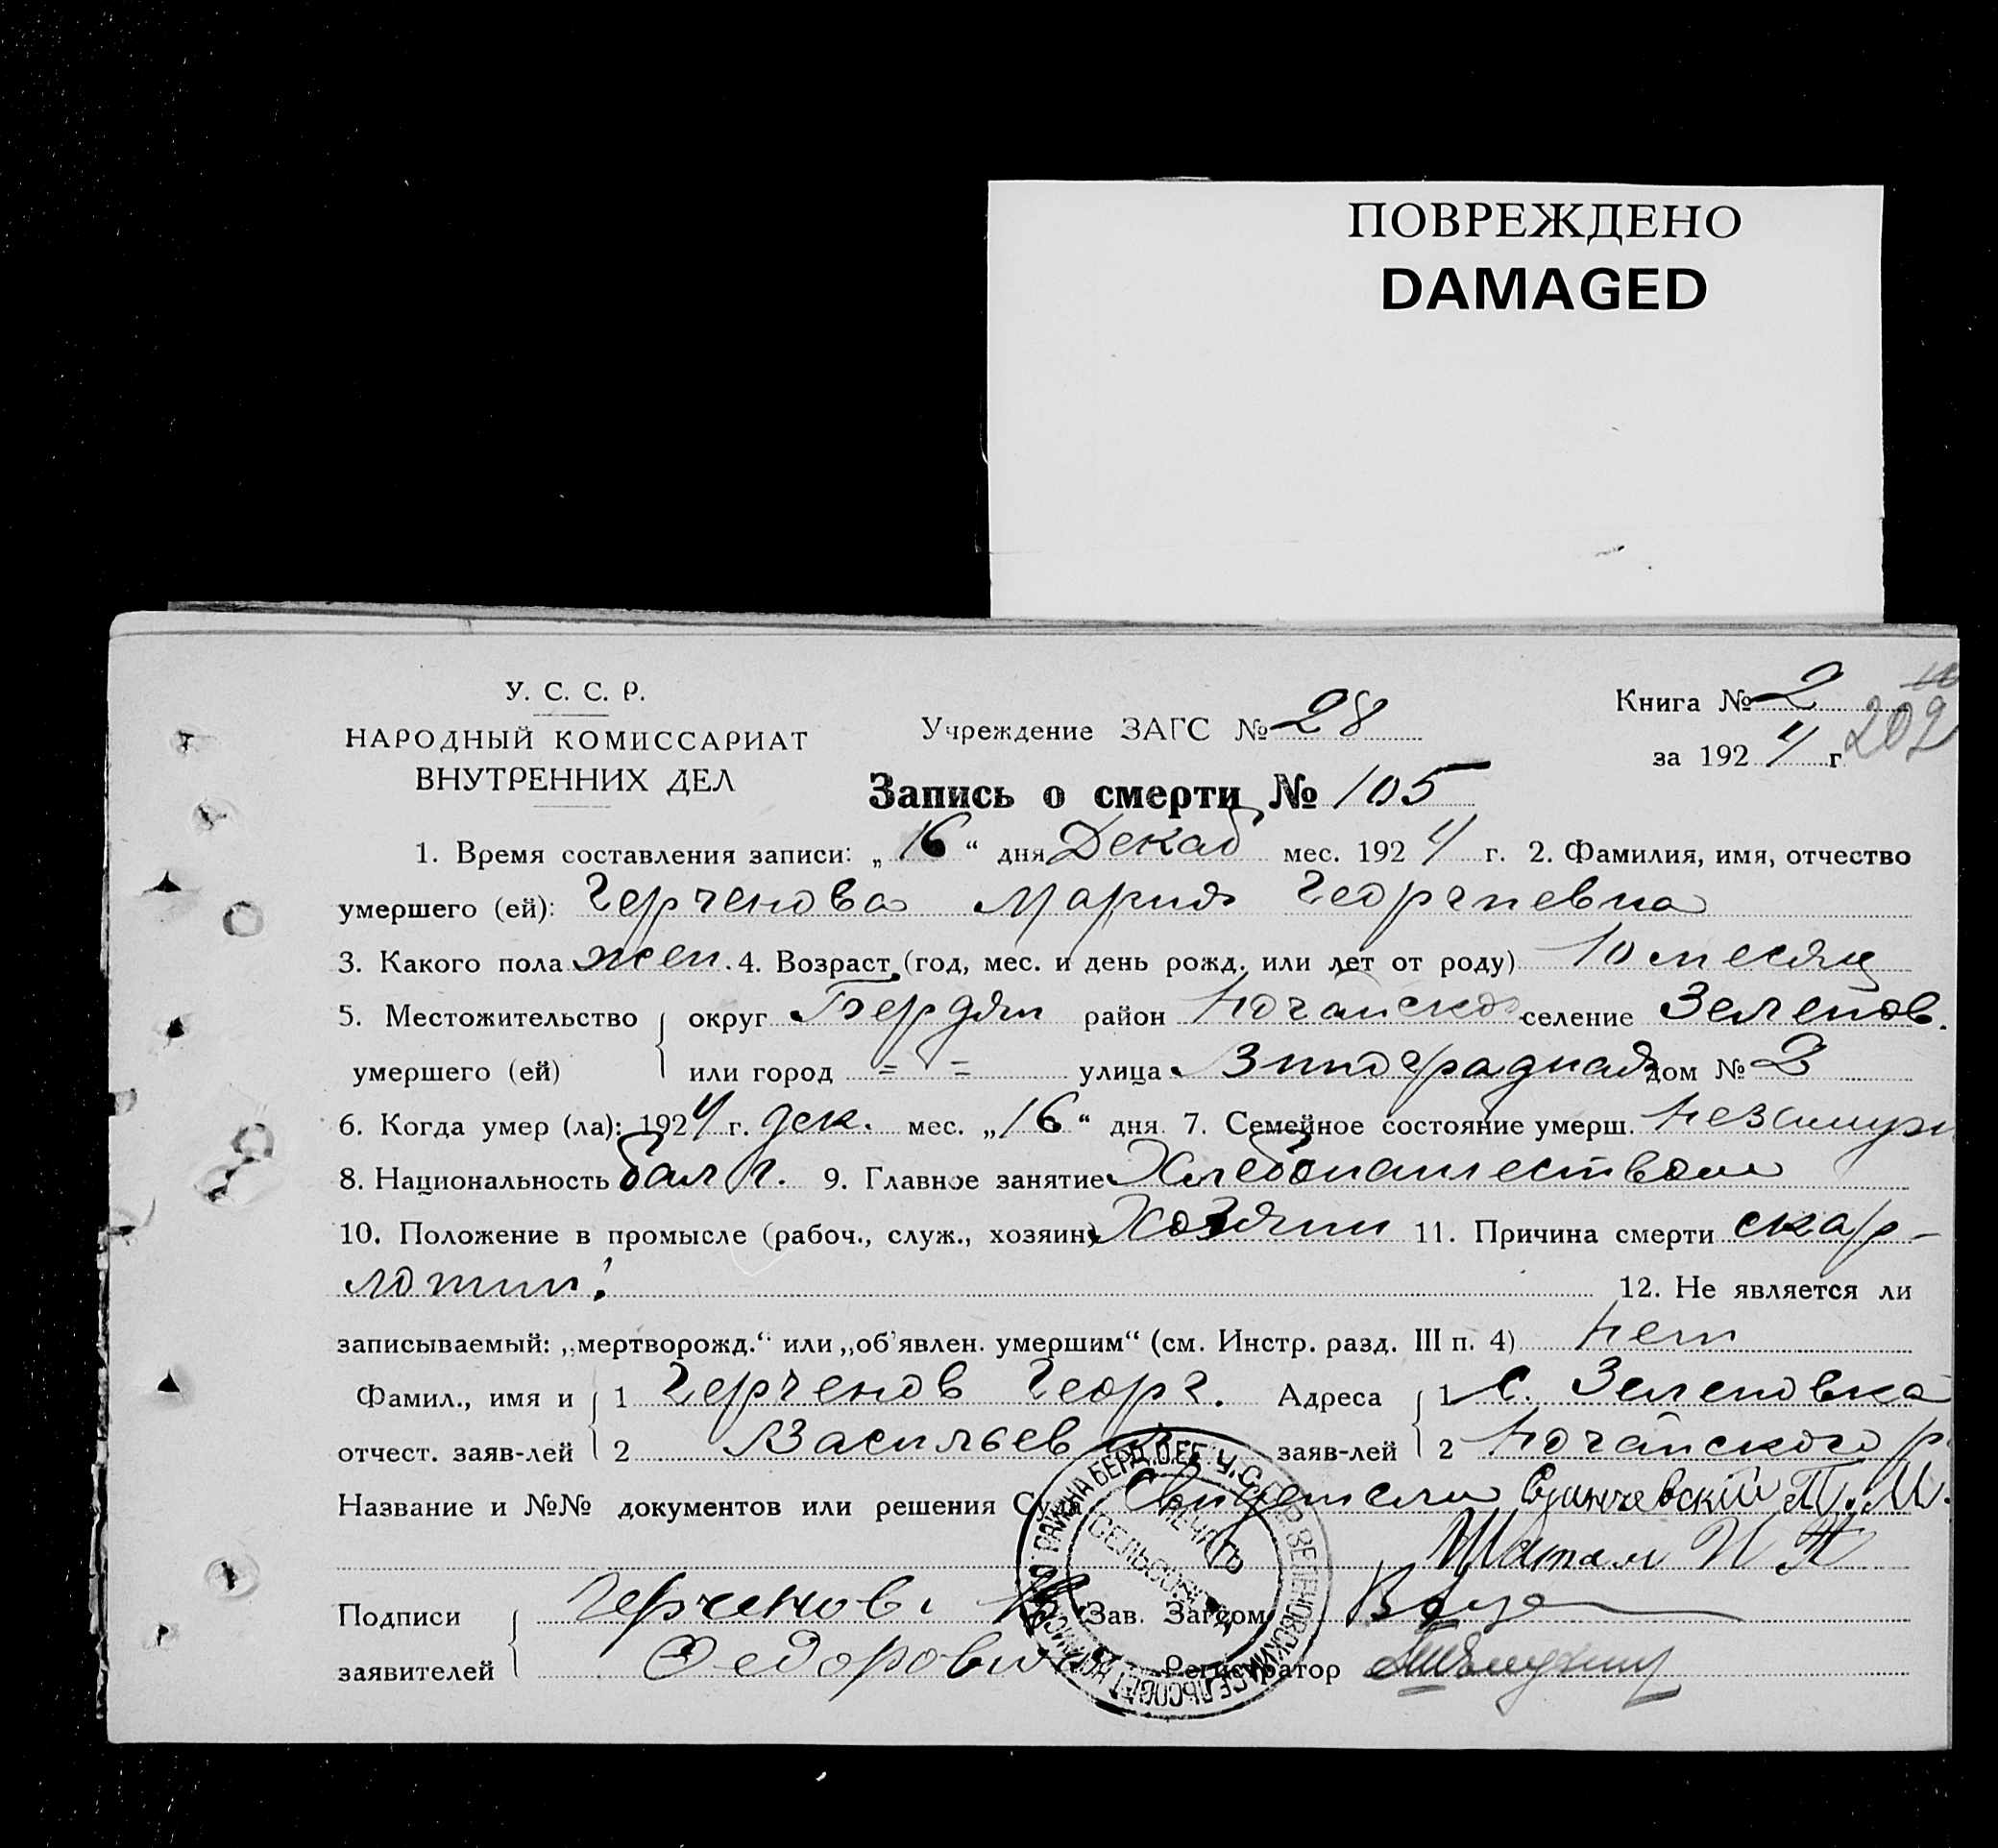 ПОВРЕЖДЕНО
DAMAGED
У. С. С. Р.
НАРОДНЫЙ КОМИССАРИАТ
ВНУТРЕННИХ ДЕЛ
Учреждение ЗАГС № 28
Книга № 2
за 1924 г. 209
Запись о смерти № 105
1. Время составления записи: „16“ дня Декаб мес. 1924 г. 2. Фамилия, имя, отчество
умершего (ей): Герченова Мария Георгиевна
3. Какого пола жен. 4. Возраст (год, мес. и день рожд. или лет от роду) 10 месяц
5. Местожительство округ Бердян район Ногайско селение Зеленов.
умершего (ей) или город = = улица Виноградная дом № 2
6. Когда умер (ла): 1924 г. дек. мес. „16“ дня 7. Семейное состояние умерш. незамуж
8. Национальность болг. 9. Главное занятие Хлебопашеством
10. Положение в промысле (рабоч., служ., хозяин) Хозяин 11. Причина смерти скар-
лотин. 12. Не является ли
записываемый: „мертворожд.“ или „об'явлен. умершим“ (см. Инстр. разд. III п. 4) нет
Фамил., имя и 1 Герченов Георг. Адреса 1 С. Зеленовка
отчест. заяв-лей 2 Васильев заяв-лей 2 Ногайского р.
Название и №№ документов или решения Суда Свидетели П. М.
И
Подписи Герченов. Зав. Загсом
заявителей Федорович Регистратор
ПЕЧАТЬ
СЕЛЬСОВЕТА